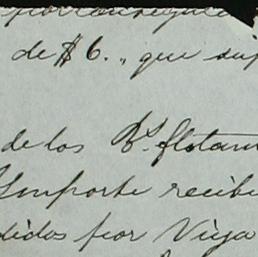 de $6., que sup
de los Rs. flotan
Importe recibi
didos por Viya